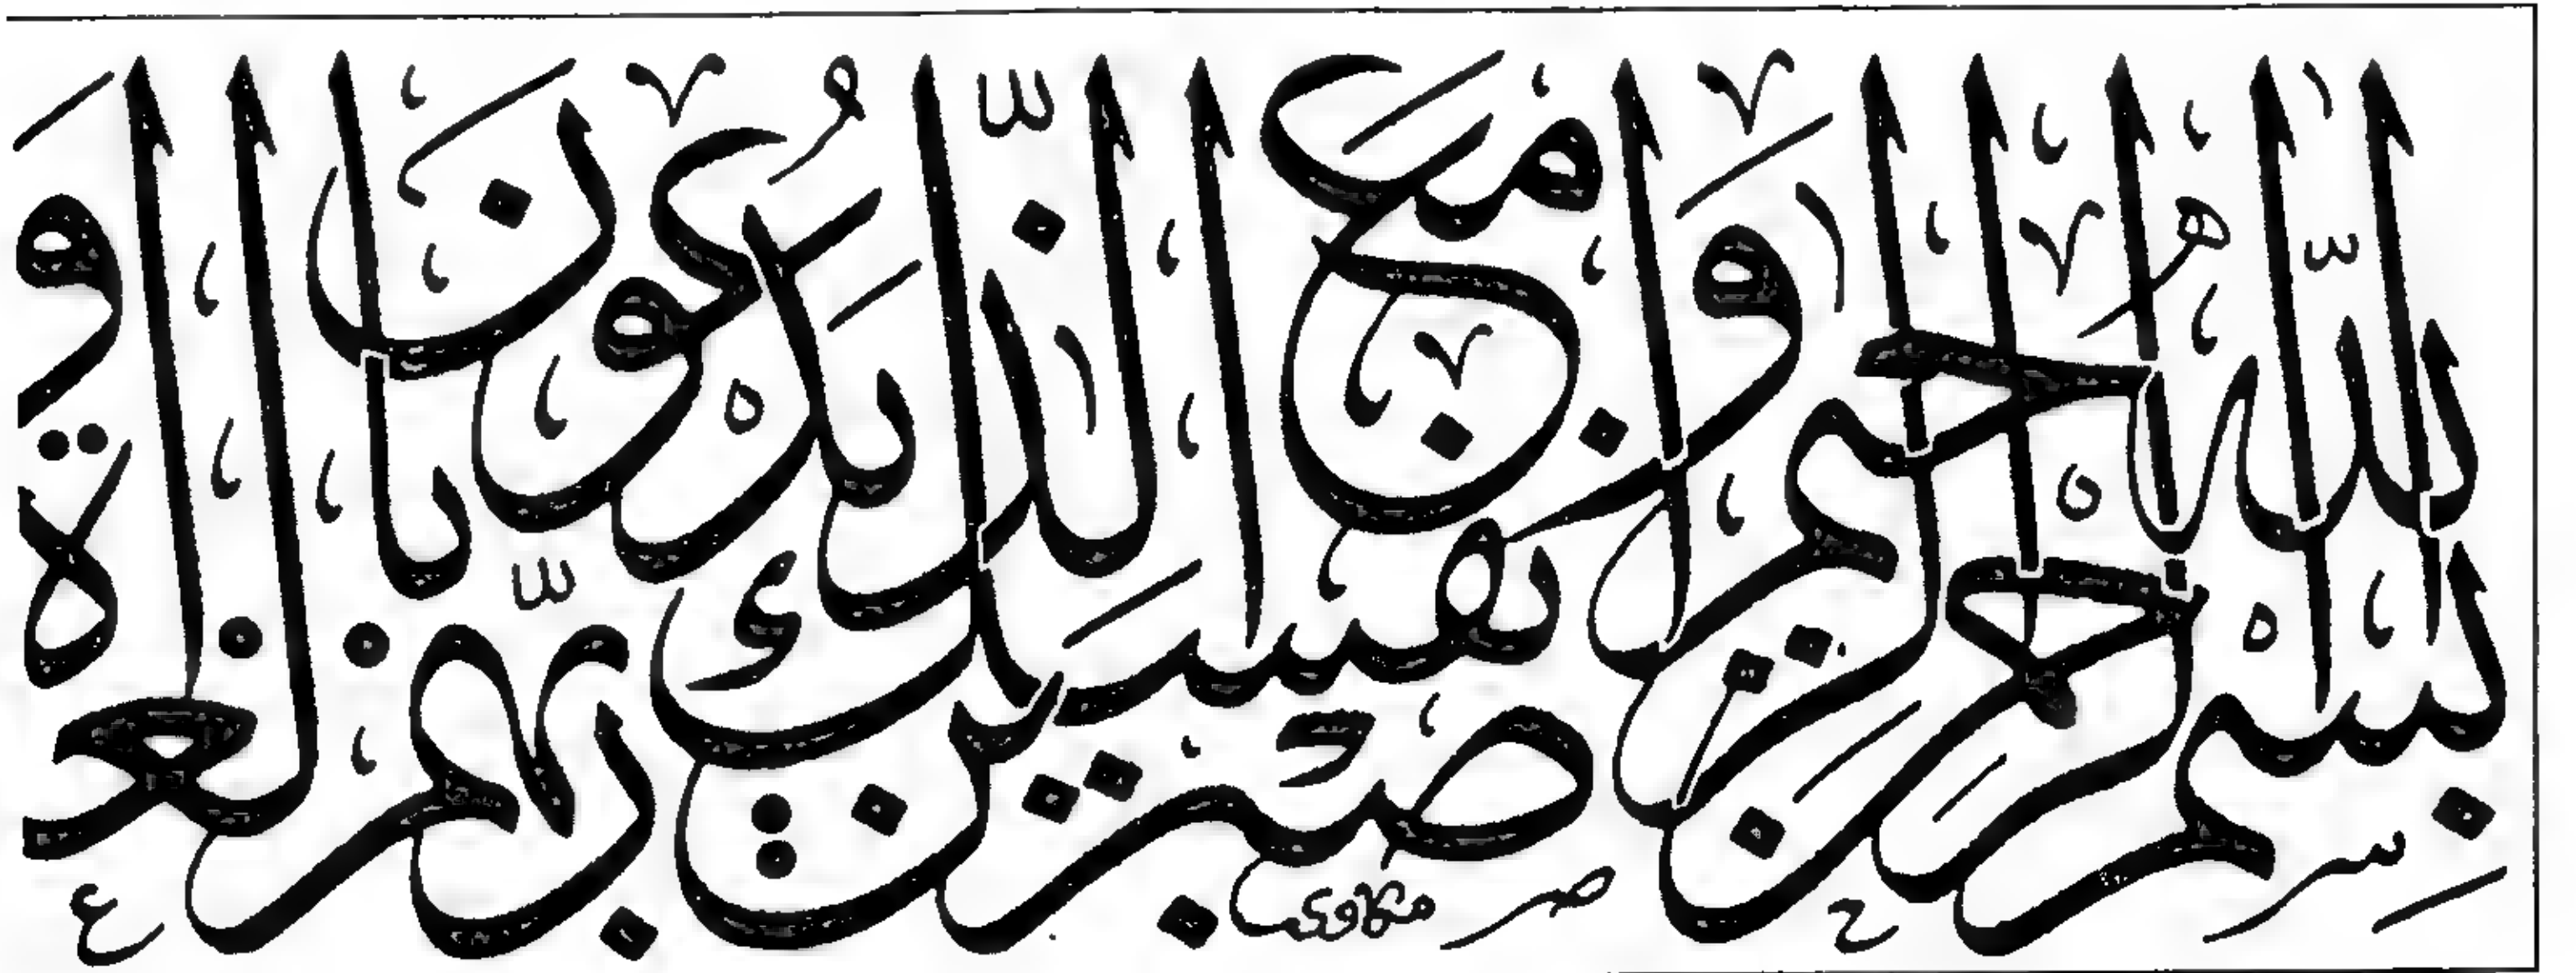 بسم الله الرحمن الرحيم واصبر نفسك مع الذين يدعون ربهم بالغدوة
مكاوى